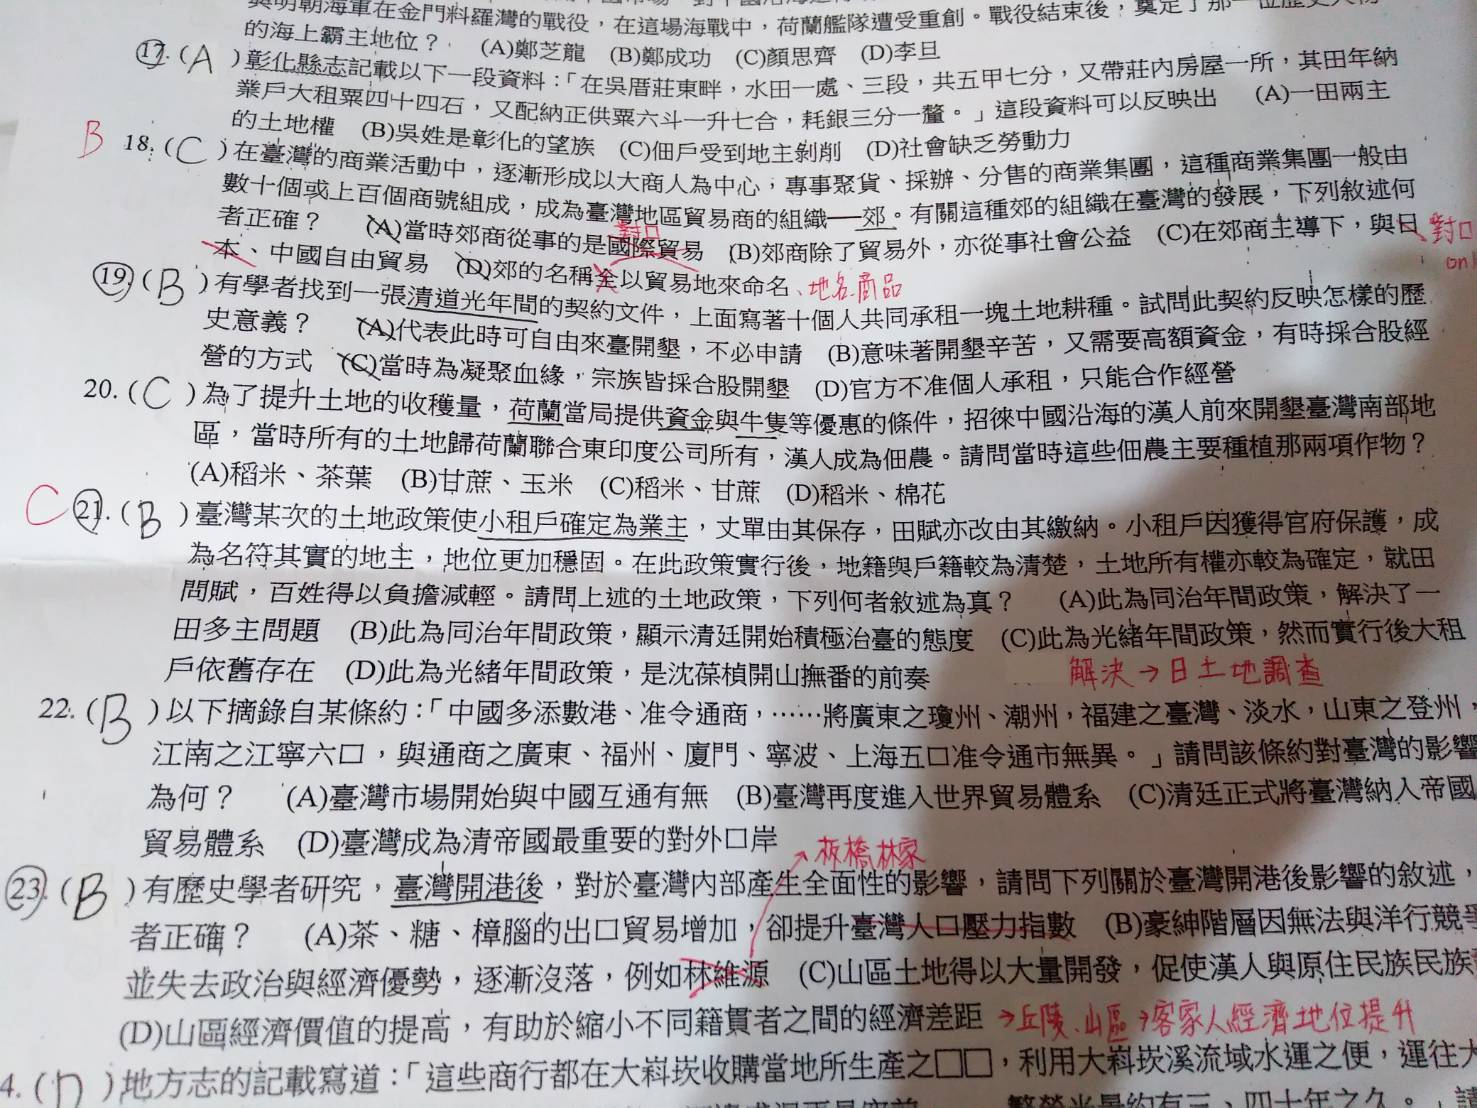 與明朝海軍在金門料羅灣的戰役，在這場海戰中，荷蘭艦隊遭受重創。戰役結束後，奠定了那一位歷史人物
的海上霸主地位？　(A)鄭芝龍　(B)鄭成功　(C)顏思齊　(D)李旦
17. (A)彰化縣志記載以下一段資料：「在吳厝莊東畔，水田一處、三段，共五甲七分，又帶莊內房屋一所，其田年納
業戶大租粟四十四石，又配納正供粟六斗一升七合，耗銀三分一釐。」這段資料可以反映出　(A)一田兩主
的土地權　(B)吳姓是彰化的望族　(C)佃戶受到地主剝削　(D)社會缺乏勞動力
B 18. (C)在臺灣的商業活動中，逐漸形成以大商人為中心，專事聚貨、採辦、分售的商業集團，這種商業集團一般由
數十個或上百個商號組成，成為臺灣地區貿易商的組織──郊。有關這種郊的組織在臺灣的發展，下列敘述何
者正確？　(A)當時郊商從事的是國際貿易　(B)郊商除了貿易外，亦從事社會公益　(C)在郊商主導下，與日
對口
對口
本、中國自由貿易　(D)郊的名稱全以貿易地來命名、地名.商品
19. (B)有學者找到一張清道光年間的契約文件，上面寫著十個人共同承租一塊土地耕種。試問此契約反映怎樣的歷
史意義？　(A)代表此時可自由來臺開墾，不必申請　(B)意味著開墾辛苦，又需要高額資金，有時採合股經
營的方式　(C)當時為凝聚血緣，宗族皆採合股開墾　(D)官方不准個人承租，只能合作經營
20. (C)為了提升土地的收穫量，荷蘭當局提供資金與牛隻等優惠的條件，招徠中國沿海的漢人前來開墾臺灣南部地
區，當時所有的土地歸荷蘭聯合東印度公司所有，漢人成為佃農。請問當時這些佃農主要種植那兩項作物？
(A)稻米、茶葉　(B)甘蔗、玉米　(C)稻米、甘蔗　(D)稻米、棉花
C 21. (B)臺灣某次的土地政策使小租戶確定為業主，丈單由其保存，田賦亦改由其繳納。小租戶因獲得官府保護，成
為名符其實的地主，地位更加穩固。在此政策實行後，地籍與戶籍較為清楚，土地所有權亦較為確定，就田
問賦，百姓得以負擔減輕。請問上述的土地政策，下列何者敘述為真？　(A)此為同治年間政策，解決了一
田多主問題　(B)此為同治年間政策，顯示清廷開始積極治臺的態度　(C)此為光緒年間政策，然而實行後大租
戶依舊存在　(D)此為光緒年間政策，是沈葆楨開山撫番的前奏
解決→日土地調查
22. (B)以下摘錄自某條約：「中國多添數港、准令通商，……將廣東之瓊州、潮州，福建之臺灣、淡水，山東之登州，
江南之江寧六口，與通商之廣東、福州、廈門、寧波、上海五口准令通市無異。」請問該條約對臺灣的影響
為何？　(A)臺灣市場開始與中國互通有無　(B)臺灣再度進入世界貿易體系　(C)清廷正式將臺灣納入帝國
貿易體系　(D)臺灣成為清帝國最重要的對外口岸
板橋林家
23. (B)有歷史學者研究，臺灣開港後，對於臺灣內部產生全面性的影響，請問下列關於臺灣開港後影響的敘述，
者正確？　(A)茶、糖、樟腦的出口貿易增加，卻提升臺灣人口壓力指數　(B)豪紳階層因無法與洋行競爭
並失去政治與經濟優勢，逐漸沒落，例如林維源　(C)山區土地得以大量開發，促使漢人與原住民族民族
(D)山區經濟價值的提高，有助於縮小不同籍貫者之間的經濟差距 →丘陵.山區→客家人經濟地位提升
4. (D)地方志的記載寫道：「這些商行都在大嵙崁收購當地所生產之□□，利用大嵙崁溪流域水運之便，運往大